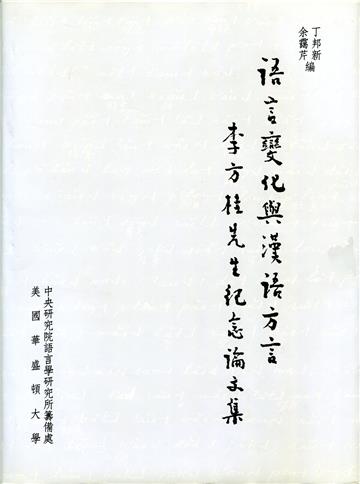 丁邦新
余靄芹編
語言變化與漢語方言
李方桂先生紀念論文集
中央研究院語言學研究所籌備處
美國華盛頓大學